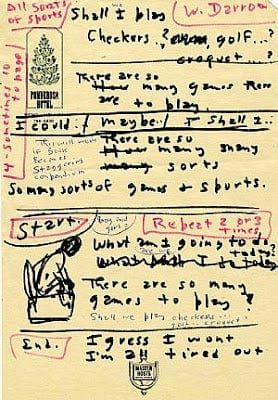 All Sorts of Sports
W. Darrow
Shall I play
Checkers..? golf...?
croquet...?
14 - Sometimes 10 to page
PONDEROSA HOTEL
There are so
How many games there
are to play.
I could / maybe / I shall..
There are so
How many many
many sorts
So many sorts of games & sports.
This will work
if book
becomes
staggering
compendium
Start.
boy and girl?
Repeat 2 or 3 times
What am I going to do today?
What shall I do today
There are so many
games to play
Shall we play checkers..
golf.. croquet?
End.
I guess I wont
I'm all tired out
MASTER HOSTS